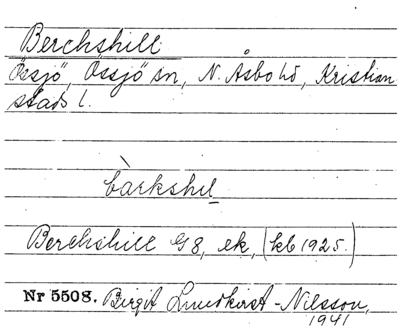 Berchshill
Össjö, Össjö sn, N. Åsbo hd, Kristian
stads l.
bàrkshıl
Berchshill G8, ek, (kb 1925.)
Nr 5508. Birgit Lundkvist-Nilsson,
1941